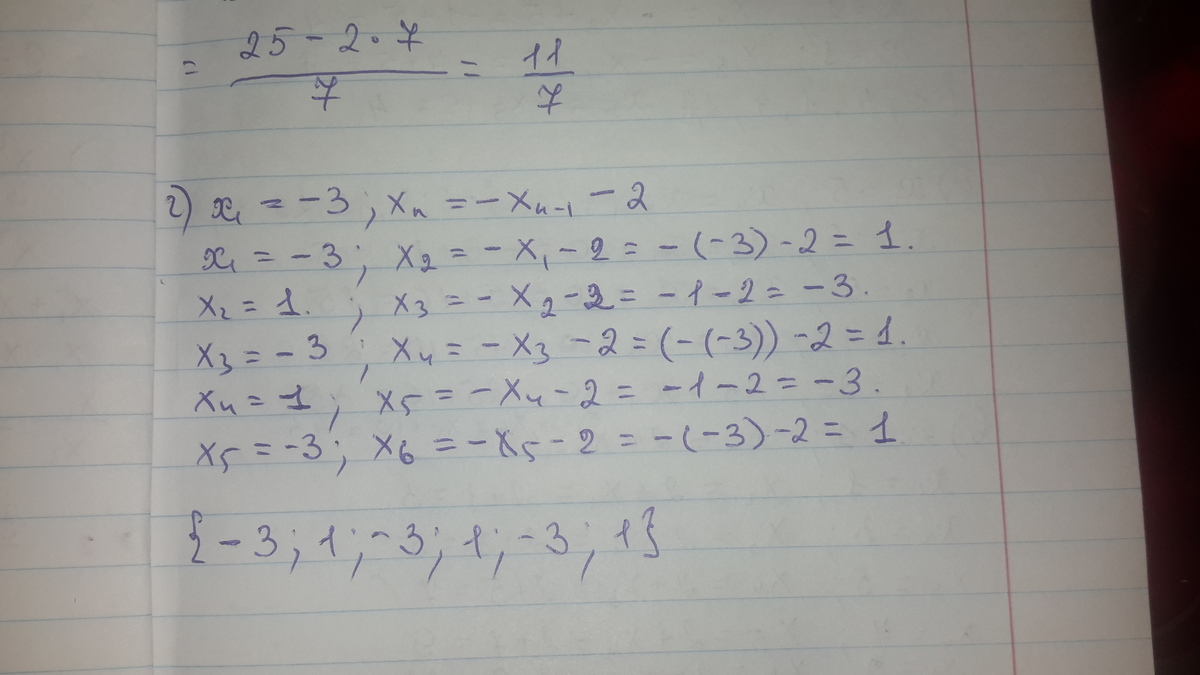 = (25 - 2 · 7) / 7 = 11 / 7
г) x₁ = -3 ; xₙ = -xₙ₋₁ - 2
x₁ = -3 ; x₂ = -x₁ - 2 = -(-3) - 2 = 1.
x₂ = 1. ; x₃ = -x₂ - 2 = -1 - 2 = -3.
x₃ = -3 ; x₄ = -x₃ - 2 = (-(-3)) - 2 = 1.
x₄ = 1 ; x₅ = -x₄ - 2 = -1 - 2 = -3.
x₅ = -3 ; x₆ = -x₅ - 2 = -(-3) - 2 = 1
{-3 ; 1 ; -3 ; 1 ; -3 ; 1}